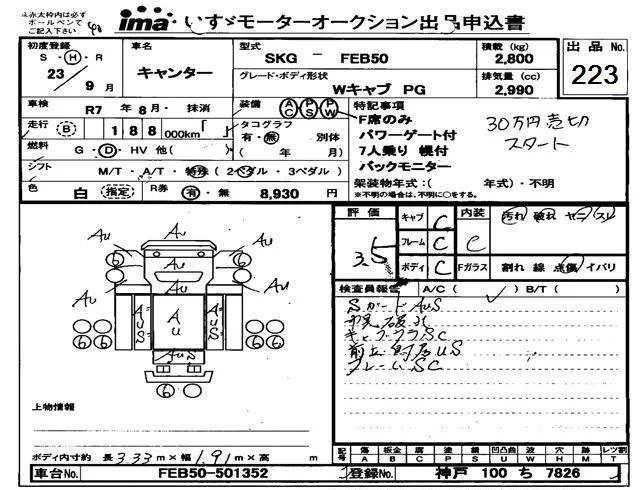 ※赤太枠内は必ず
ボールペンで
ご記入下さい。
ima いすゞモーターオークション出品申込書
初度登録 S・H・R 23年 9月
車名 キャンター
型式 SKG － FEB50
グレード・ボディ形状 Wキャブ PG
積載 (kg) 2,800
排気量 (cc) 2,990
出品No. 223
車検 R7 年 8月・ 抹消
装備 AC PS PW
走行 B 188 000km「 」
タコグラフ 有・無 別体 ( 年 月)
燃料 G・D・HV 他( )
シフト M/T・A/T・特殊 ( 2ペダル・3ペダル )
色 白 指定 R券 有・無 8,930 円
特記事項
F席のみ
パワーゲート付
7人乗り 幌付
バックモニター
架装物年式:( 年式)・不明
※不明の場合は、不明に○をする。
30万円売切
スタート
評価 3.5
キャブ C
フレーム C
ボディ C
内装 C
汚れ 破れ ヤニ スレ
Fガラス 割れ 線 点傷 イバリ
検査員報告 A/C ( ) B/T ( )
SガードAUS
キャブフラSC
フレームSC
AU AU AU AU AU
AUS AU AUS
AUS
6 6
6 6 6 6
6 6
上物情報
ボディ内寸約 長 3.33 m×幅 1.91 m×高 m
記号 傷 板金 腐 塗 錆 凹凸曲 波 穴 跡 レツ割
A B C P S U W H M T
車台No. FEB50-501352
登録No. 神戸 100 ち 7826